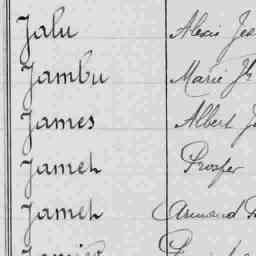 Jalu Alexis Jea
Jambu Marie Jh
James Albert J
Jamet Prosper
Jamet Armand F
Janvier